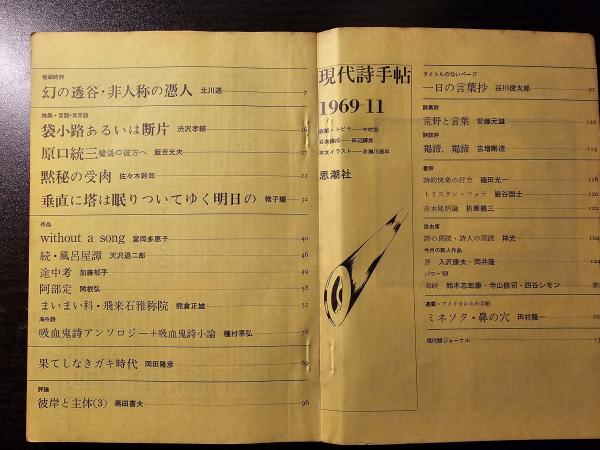 巻頭時評
幻の透谷・非人称の憑人 北川透 7
特集・言語・反言語
袋小路あるいは断片 渋沢孝輔 16
原口統三 嘘偽の彼方へ 飯吉光夫 27
黙秘の受肉 佐々木幹郎 22
垂直に塔は眠りついてゆく明日の 帷子耀 12
作品
without a song 富岡多恵子 40
続・風呂屋譚 天沢退二郎 46
途中考 加藤郁乎 49
阿部定 関根弘 38
まいまい科・飛来石雅称院 熊倉正雄 52
海外詩
吸血鬼詩アンソロジー+吸血鬼詩小論 種村季弘 78
果てしなきガキ時代 岡田隆彦 69
評論
彼岸と主体(3) 黒田喜夫 96
現代詩手帖
1969・11
表紙・トビラ 中村宏
目次構成 田辺輝男
本文イラスト 赤瀬川原平
思潮社
タイトルのないページ
一日の言葉抄 谷川俊太郎 92
詩集評
荒野と言葉 安藤元雄 110
詩誌評
羯諦、羯諦 吉増剛造 114
書評
詩的快楽の行方 磯田光一 118
トリスタン・ツァラ 巖谷国士 120
吉本隆明論 折原脩三 122
自由席
詩の朗読・詩人の朗読 林光 104
今月の新人作品
評 入沢康夫・岡井隆 124
パワー'69
鈴木志郎康・寺山修司・四谷シモン
連載・アメリカからの手紙
ミネソタ・鼻の穴 田村隆一
現代詩ジャーナル